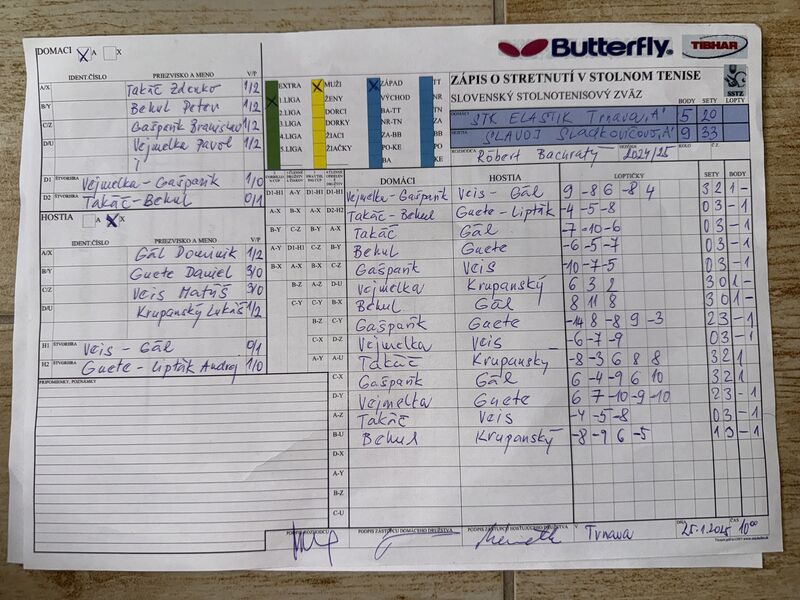 DOMACI X A X
IDENT.ČÍSLO PRIEZVISKO A MENO V/P
A/X Takáč Zdenko 1/2
B/Y Behul Peter 1/2
C/Z Gašparík Branislav 1/2
D/U Vejmelka Pavol 1/2
D1 ŠTVORHRA Vejmelka - Gašparík 1/0
D2 ŠTVORHRA Takáč - Behul 0/1
HOSTIA A X
IDENT.ČÍSLO PRIEZVISKO A MENO V/P
A/X Gál Dominik 1/2
B/Y Guete Daniel 3/0
C/Z Veis Matúš 3/0
D/U Krupanský Lukáš 1/2
H1 ŠTVORHRA Veis - Gál 0/1
H2 ŠTVORHRA Guete - Lipták Andrej 1/0
PRIPOMIENKY, POZNÁMKY
Butterfly
TIBHAR
EXTRA MUŽI ZÁPAD TT
1.LIGA ŽENY VÝCHOD NR
DORCI BA-TT
DORKY
4.LIGA ŽIACI ZA-BB BB
5.LIGA ŽIAČKY PO-KE PO
BA KE
ZÁPIS O STRETNUTÍ V STOLNOM TENISE
SLOVENSKÝ STOLNOTENISOVÝ ZVÄZ
SSTZ
BODY SETY LOPTY
DOMÁCI STK ELASTIK Trnava,,A" 5 20
HOSTIA SLAVOJ Sládkovičovo,,A" 9 33
ROZHODCA Róbert Bachratý SEZÓNA 2024/25 KOLO Č.Z.
DOMÁCI HOSTIA LOPTIČKY SETY BODY
D1-H1 A-Y D1-H1 D1-H1 Vejmelka - Gašparík Veis - Gál 9 -8 6 -8 4 3 2 1 -
A-X B-X A-X D2-H2 Takáč - Behul Guete - Lipták -4 -5 -8 0 3 - 1
B-Y C-Z B-Y A-X Takáč Gál -7 -10 -6 0 3 - 1
A-Y D1-H1 C-Z B-Y Behul Guete -6 -5 -7 0 3 - 1
B-X A-X B-X C-Z Gašparík Veis -10 -7 -5 0 3 - 1
B-Z A-Z D-U Vejmelka Krupanský 6 3 2 3 0 1 -
C-Y B-X Behul Gál 8 11 8 3 0 1 -
B-Z C-Y Gašparík Guete -14 8 -8 9 -3 2 3 - 1
C-X D-Z Vejmelka Veis -6 -7 -9 0 3 - 1
A-Y A-U Takáč Krupanský -8 -3 6 8 8 3 2 1
C-X Gašparík Gál 6 -4 -9 6 10 3 2 1
D-Y Vejmelka Guete 6 7 -10 -9 -10 2 3 - 1
A-Z Takáč Veis -4 -5 -8 0 3 - 1
B-U Behul Krupanský -8 -9 6 -5 1 3 - 1
D-X
A-Y
B-Z
C-U
PODPIS ZÁSTUPCU DOMÁCEHO DRUŽSTVA PODPIS ZÁSTUPCU HOSŤUJÚCEHO DRUŽSTVA V Trnava DŇA 25.1.2025 ČAS 10:00